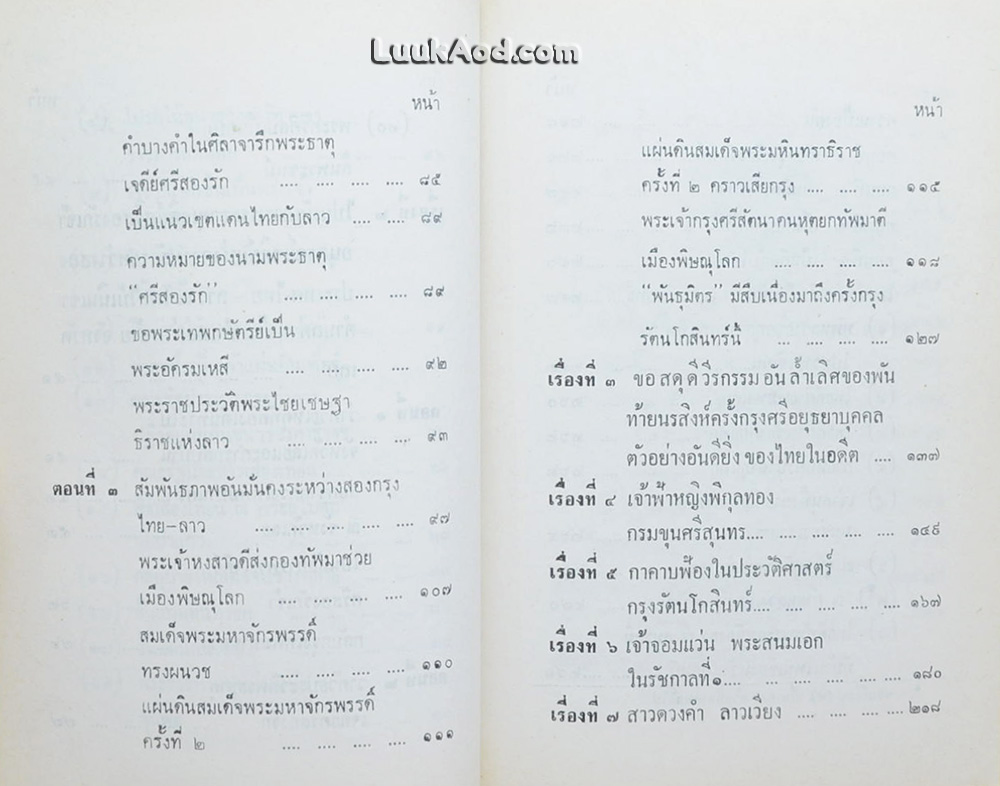 LuukAod.com
หน้า
คำบางคำในศิลาจารึกพระธาตุ
เจดีย์ศรีสองรัก .... .... .... .... ๘๕
เป็นแนวเขตแดนไทยกับลาว .... .... ๘๙
ความหมายของนามพระธาตุ
“ศรีสองรัก” .... .... .... .... ๘๙
ขอพระเทพกษัตรีย์เป็น
พระอัครมเหสี .... .... .... .... ๙๒
พระราชประวัติพระไชยเชษฐา
ธิราชแห่งลาว .... .... .... .... ๙๓
ตอนที่ ๓ สัมพันธภาพอันมั่นคงระหว่างสองกรุง
ไทย-ลาว .... .... .... .... .... ๙๗
พระเจ้าหงสาวดีส่งกองทัพมาช่วย
เมืองพิษณุโลก .... .... .... .... ๑๐๗
สมเด็จพระมหาจักรพรรดิ์
ทรงผนวช .... .... .... .... ๑๑๐
แผ่นดินสมเด็จพระมหาจักรพรรดิ์
ครั้งที่ ๒ .... .... .... .... ๑๑๑
หน้า
แผ่นดินสมเด็จพระมหินทราธิราช
ครั้งที่ ๒ คราวเสียกรุง .... .... .... ๑๑๕
พระเจ้ากรุงศรีสัตนาคนหุตยกทัพมาตี
เมืองพิษณุโลก .... .... .... .... ๑๑๘
“พันธุมิตร” มีสืบเนื่องมาถึงครั้งกรุง
รัตนโกสินทร์นี้ .... .... .... .... ๑๒๗
เรื่องที่ ๓ ขอสดุดีวีรกรรมอันล้ำเลิศของพัน
ท้ายนรสิงห์ครั้งกรุงศรีอยุธยาบุคคล
ตัวอย่างอันดียิ่งของไทยในอดีต .... ๑๓๗
เรื่องที่ ๔ เจ้าฟ้าหญิงพิกุลทอง
กรมขุนศรีสุนทร.... .... .... .... .... ๑๔๙
เรื่องที่ ๕ กาคาบพ้องในประวัติศาสตร์
กรุงรัตนโกสินทร์.... .... .... .... .... ๑๖๗
เรื่องที่ ๖ เจ้าจอมแว่น พระสนมเอก
ในรัชกาลที่๑.... .... .... .... .... ๑๘๐
เรื่องที่ ๗ สาวดวงคำ ลาวเวียง .... .... .... ๒๑๘